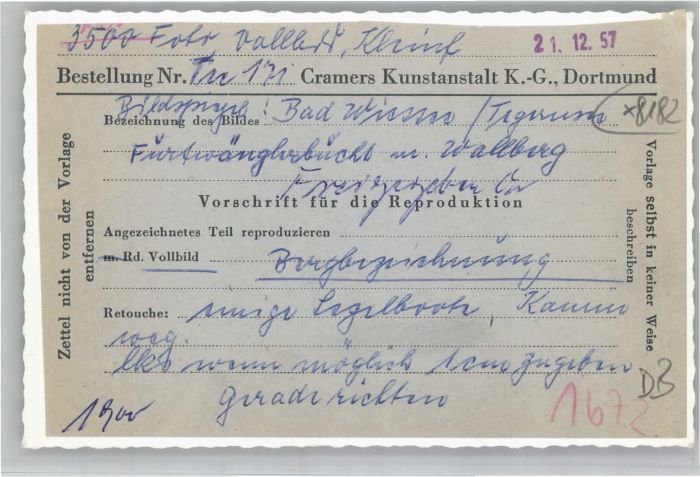 3500 Foto, Vollbild, Kleinf
21. 12. 57
Bestellung Nr. Tu 171 Cramers Kunstanstalt K.-G., Dortmund
Bildspiegel: Bad Wiessee / Tegernsee
*8182
Bezeichnung des Bildes
Furtwänglerbucht m. Wallberg
Freigegeben
Vorschrift für die Reproduktion
Angezeichnetes Teil reproduzieren
m. Rd. Vollbild Bergbezeichnung
Retouche: einige Segelboote, Kamin
weg.
lks wenn möglich 1 cm zugeben
gerade richten
1900
1672
DB
Zettel nicht von der Vorlage
entfernen
Vorlage selbst in keiner Weise
beschreiben